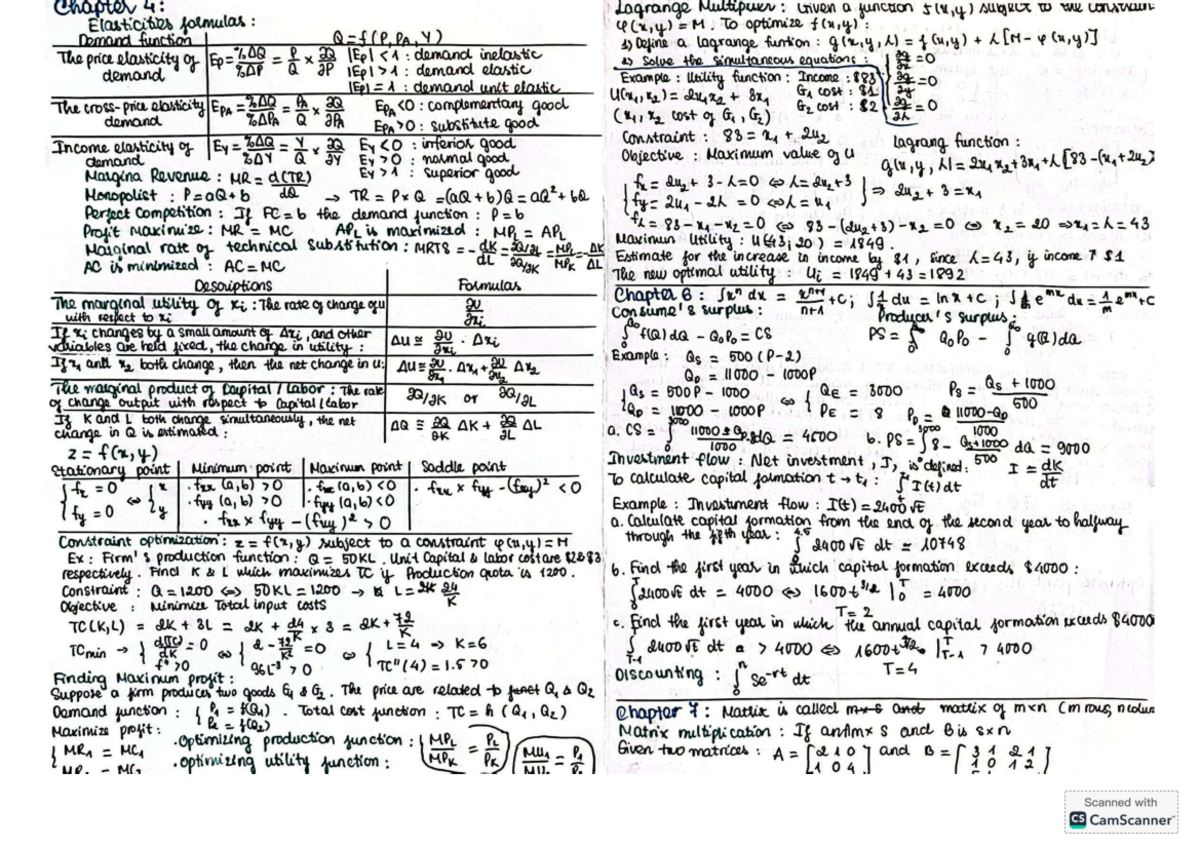 Chapter 4:
Elasticities formulas:
Demand function Q = f(P, PA, Y)
The price elasticity of demand Ep = %ΔQ/%ΔP = P/Q × ∂Q/∂P
|Ep| < 1 : demand inelastic
|Ep| > 1 : demand elastic
|Ep| = 1 : demand unit elastic
The cross-price elasticity demand EPA = %ΔQ/%ΔPA = PA/Q × ∂Q/∂PA
EPA < 0 : complementary good
EPA > 0 : substitute good
Income elasticity of demand EY = %ΔQ/%ΔY = Y/Q × ∂Q/∂Y
EY < 0 : inferior good
EY > 0 : normal good
EY > 1 : superior good
Margina Revenue : MR = d(TR)/dQ
Monopolist : P = aQ + b → TR = P × Q = (aQ + b)Q = aQ² + bQ
Perfect Competition : If FC = b the demand function : P = b
Profit Maximize : MR = MC APL is maximized : MPL = APL
Marginal rate of technical Substitution : MRTS = -dK/dL = ∂Q/∂L / ∂Q/∂K = MPL/MPK = -ΔK/ΔL
AC is minimized : AC = MC
Descriptions Formulas
The marginal utility of xi : The rate of change of u with respect to xi ∂U/∂xi
If xi changes by a small amount of Δxi, and other variables are held fixed, the change in utility : ΔU ≅ ∂U/∂xi · Δxi
If x1 and x2 both change, then the net change in U: ΔU = ∂U/∂x1 · Δx1 + ∂U/∂x2 Δx2
The marginal product of Capital / Labor : The rate of change output with respect to Capital / Labor ∂Q/∂K or ∂Q/∂L
If K and L both change simultaneously, the net change in Q is estimated : ΔQ ≅ ∂Q/∂K ΔK + ∂Q/∂L ΔL
z = f(x, y)
Stationary point | Minimum point | Maximum point | Saddle point
fx = 0 ⇔ x · fxx (a,b) > 0 · fxx (a,b) < 0 · fxx × fyy - (fxy)² < 0
fy = 0 y · fyy (a,b) > 0 · fyy (a,b) < 0
· fxx × fyy - (fxy)² > 0
Constraint optimization : z = f(x,y) subject to a constraint φ(x,y) = M
Ex : Firm's production function : Q = 50KL . Unit Capital & labor cost are $2 & $3
respectively. Find K & L which maximizes TC if Production quota is 1200.
Constraint : Q = 1200 ⇔ 50KL = 1200 → L = 24/K
Objective : Minimize Total input costs
TC(K,L) = 2K + 3L = 2K + 24/K × 3 = 2K + 72/K
TCmin → d(TC)/dK = 0 ⇔ 2 - 72/K² = 0 ⇔ L = 4 → K = 6
f" > 0 96L⁻³ > 0 TC"(4) = 1.5 > 0
Finding Maximum profit :
Suppose a firm produces two goods G1 & G2. The price are related to Q1 & Q2
Demand function : P1 = f(Q1) . Total cost function : TC = h(Q1, Q2)
P2 = f(Q2)
Maximize profit : · Optimizing production function : MPL/MPK = PL/PK
MR1 = MC1 · Optimizing utility function :
MR2 = MC2
Lagrange Multiplier : Given a function f(x,y) subject to the constraint
φ(x,y) = M. To optimize f(x,y) :
1) Define a lagrange funtion : g(x,y,λ) = f(x,y) + λ[M - φ(x,y)]
2) Solve the simultaneous equations : ∂g/∂x = 0
∂g/∂y = 0
∂g/∂λ = 0
Example : Utility function : Income : $83
U(x1,x2) = 2x1x2 + 3x1 G1 cost : $1
(x1, x2 cost of G1, G2) G2 cost : $2
Constraint : 83 = x1 + 2x2 Lagrang function :
Objective : Maximum value of U g(x,y,λ) = 2x1x2 + 3x1 + λ[83 - (x1 + 2x2)]
fx = 2x2 + 3 - λ = 0 ⇔ λ = 2x2 + 3
fy = 2x1 - 2λ = 0 ⇔ λ = x1 ⇒ 2x2 + 3 = x1
fλ = 83 - x1 - x2 = 0 ⇔ 83 - (2x2 + 3) - x2 = 0 ⇔ x2 = 20 ⇒ x1 = λ = 43
Maximum Utility : U(43; 20) = 1849.
Estimate for the increase in income by $1, since λ = 43, if income ↑ $1
The new optimal utility : Ui = 1849 + 43 = 1892
Chapter 6 : ∫xⁿ dx = xⁿ⁺¹/n+1 + C ; ∫1/x dx = ln x + C ; ∫e^mx dx = 1/m e^mx + C
Consume's surplus : Producer's surplus :
∫f(Q)dQ - Q0P0 = CS PS = Q0P0 - ∫g(Q)dQ
Example : QS = 500(P - 2)
QD = 11000 - 1000P
QS = 500P - 1000 ⇔ QE = 3000 PS = QS + 1000/500
QD = 11000 - 1000P PE = 8 PD = 11000 - QD/1000
a. CS = dQ = 4500 b. PS = ∫8 - QS + 1000/500 dQ = 9000
Investment flow : Net investment, I, is defined : I = dK/dt
To calculate capital formation t → t1 : ∫I(t)dt
Example : Investment flow : I(t) = 2400√t
a. Calculate capital formation from the end of the second year to halfway
through the fifth year : ∫2400√t dt = 10748
b. Find the first year in which capital formation exceeds $4000 :
∫2400√t dt = 4000 ⇔ 1600t^3/2 |T0 = 4000
T = 2
c. Find the first year in which the annual capital formation exceeds $4000
∫2400√t dt > 4000 ⇔ 1600t^3/2 |T T-1 > 4000
T = 4
Discounting : ∫Se^-rt dt
Chapter 7 : Matrix is called matrix of m×n (m rows, n colum
Matrix multiplication : If A is m × s and B is s × n
Given two matrices : A = [2 1 0 and B = [3 1 2 1
1 0 4] 1 0 1 2
Scanned with
CS CamScanner